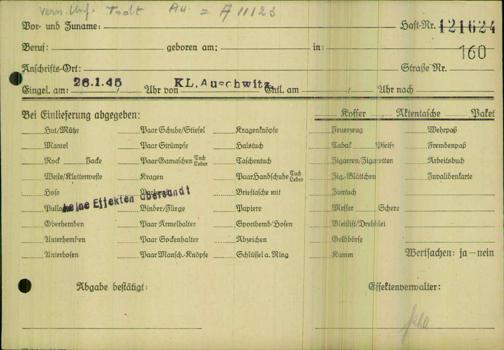 Au. = A 11123
Vor- und Zuname: Haft-Nr. 121624
Beruf: geboren am: in: 160
Anschrifts-Ort: Straße Nr.
Eingel. am: 26.1.45 Uhr von KL. Auschwitz Entl. am / Uhr nach
Bei Einlieferung abgegeben: Koffer Aktentasche Paket
Hut/Mütze Paar Schuhe/Stiefel Kragenknöpfe Feuerzeug Wehrpaß
Mantel Paar Strümpfe Halstuch Tabak Pfeife Fremdenpaß
Rock Jacke Paar Gamaschen Tuch Leder Taschentuch Zigarren/Zigaretten Arbeitsbuch
Weste/Kletterweste Kragen Paar Handschuhe Tuch Leder Zig.-Blättchen Invalidenkarte
Hose Brieftasche mit
keine Effekten übersandt
Binder/Fliege Papiere Messer Schere
Oberhemden Paar Ärmelhalter Sporthemd/Hosen Bleistift/Drehblei
Unterhemden Paar Sockenhalter Abzeichen Geldbörse Wertsachen: ja — nein
Unterhosen Paar Mansch.-Knöpfe Schlüssel a. Ring Kamm
Abgabe bestätigt: Effektenverwalter: